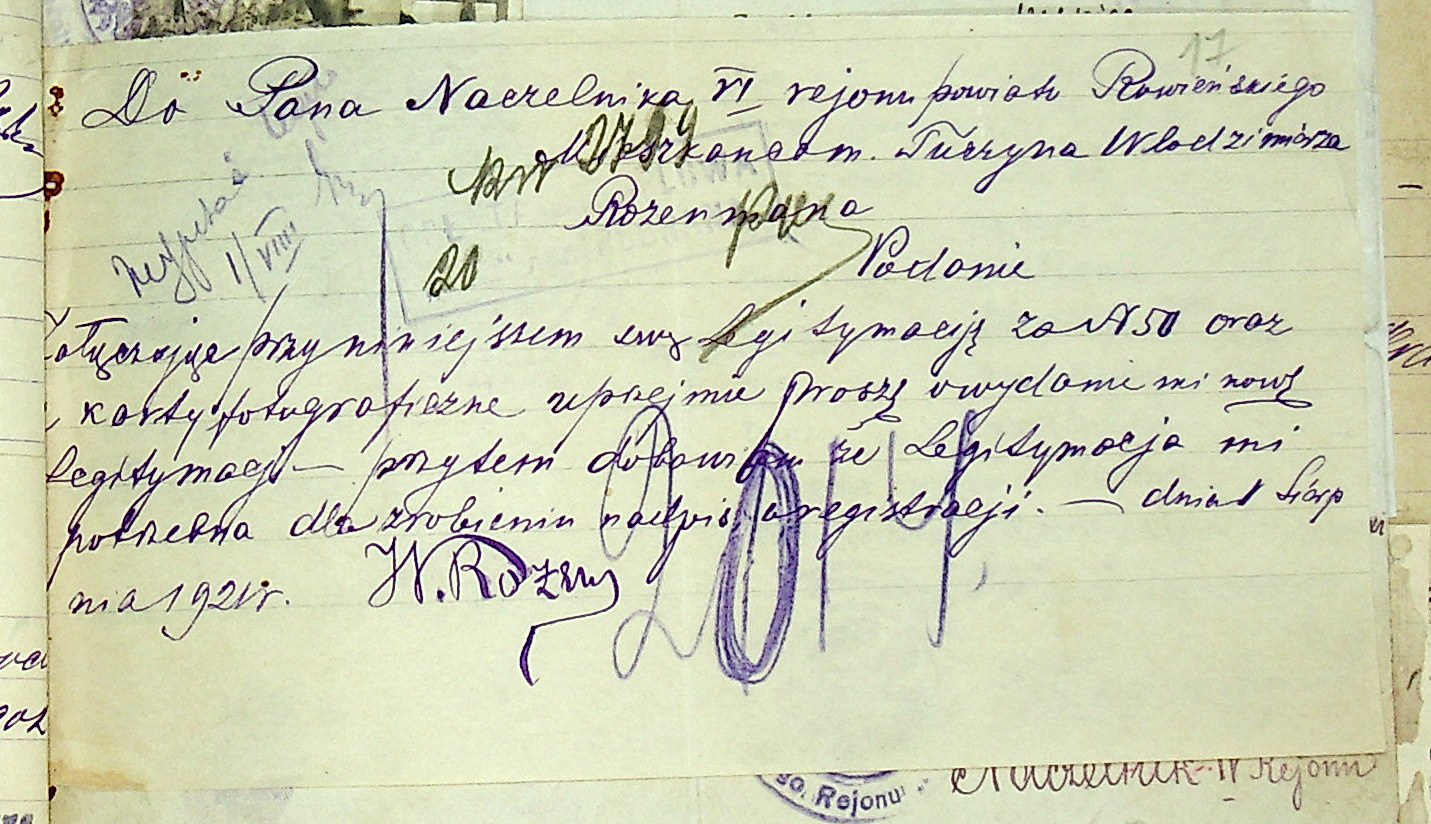 17
Do Pana Naczelnika VI rejonu powiatu Rowieńskiego
Mieszkańca m. Tuczyna Włodzimiérza
2794
Rozenmana
20
Podanie
1/VIII
Załączając przyniniejszem swą legitymaciją za N 50 oraz
karty fotograficzne uprzejmie proszę owydanie mi nową
legitymacji — przytem dobawiam że Legitymacja mi
potrzebna dla zrobieniu nadpisu oregistracji. — dnia 1 Sierp
nia 1921 r. W. Rozen
2014
go Rejonu
Naczelnik IV Rejonu